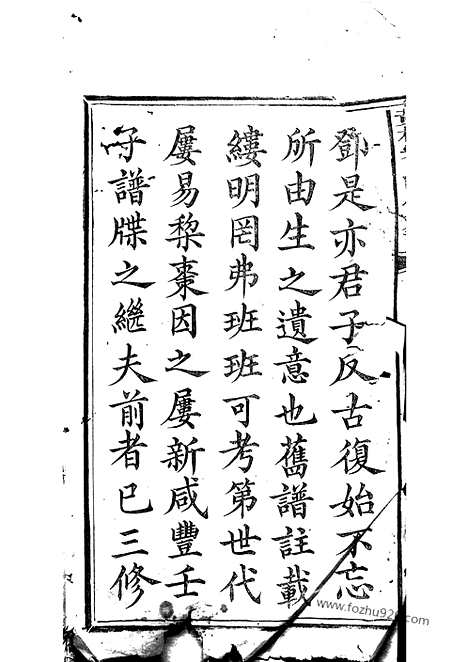 鄧是亦君子反古復始不忘
所由生之遺意也舊譜註載
縷明罔弗班班可考第世代
屢易棃棗因之屢新咸豐壬
子譜牒之繼夫前者已三修
www.fozhu920.com